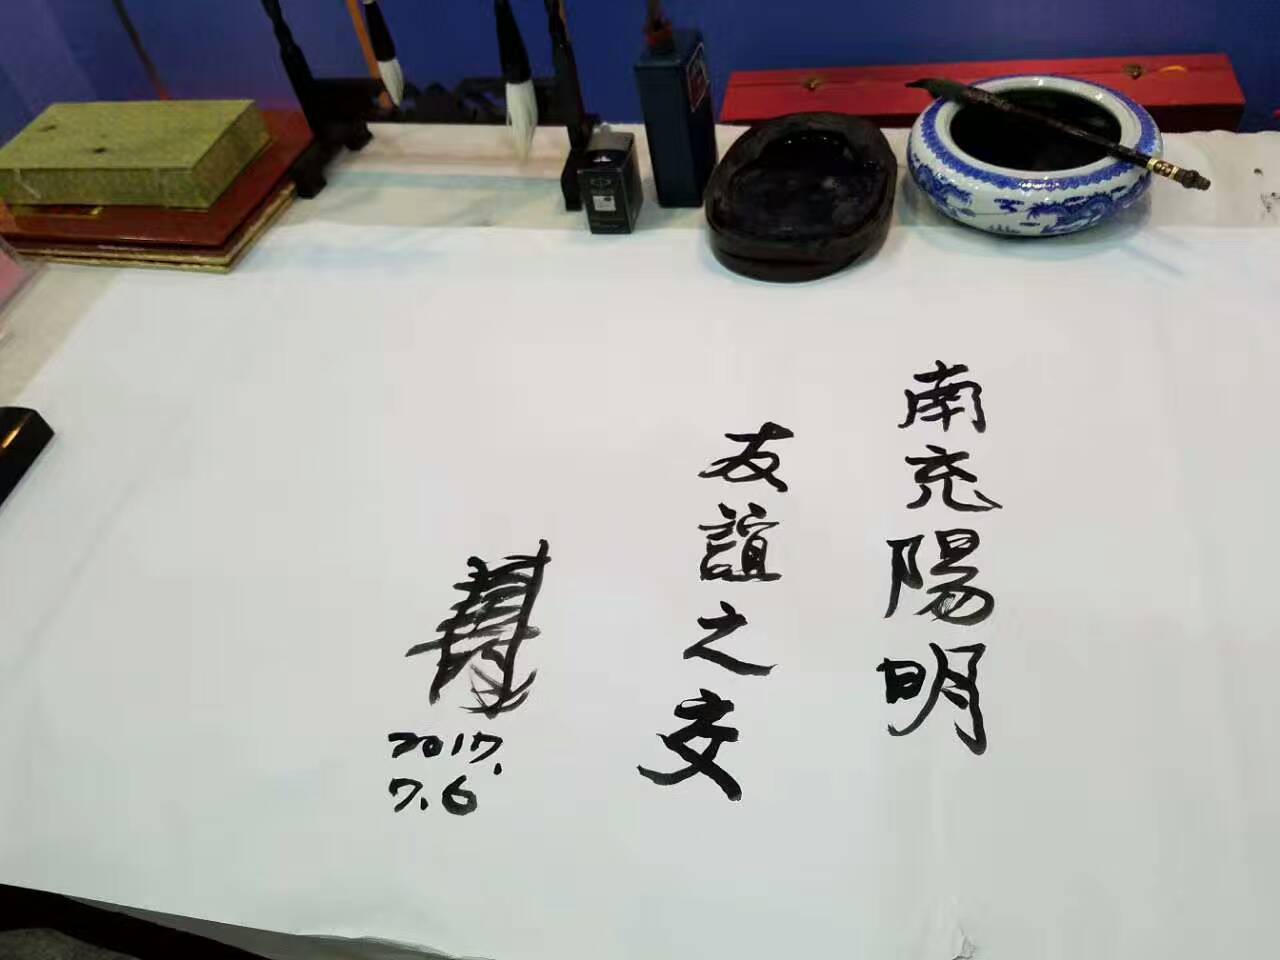 南充陽明
友誼之交
2017.
7.6